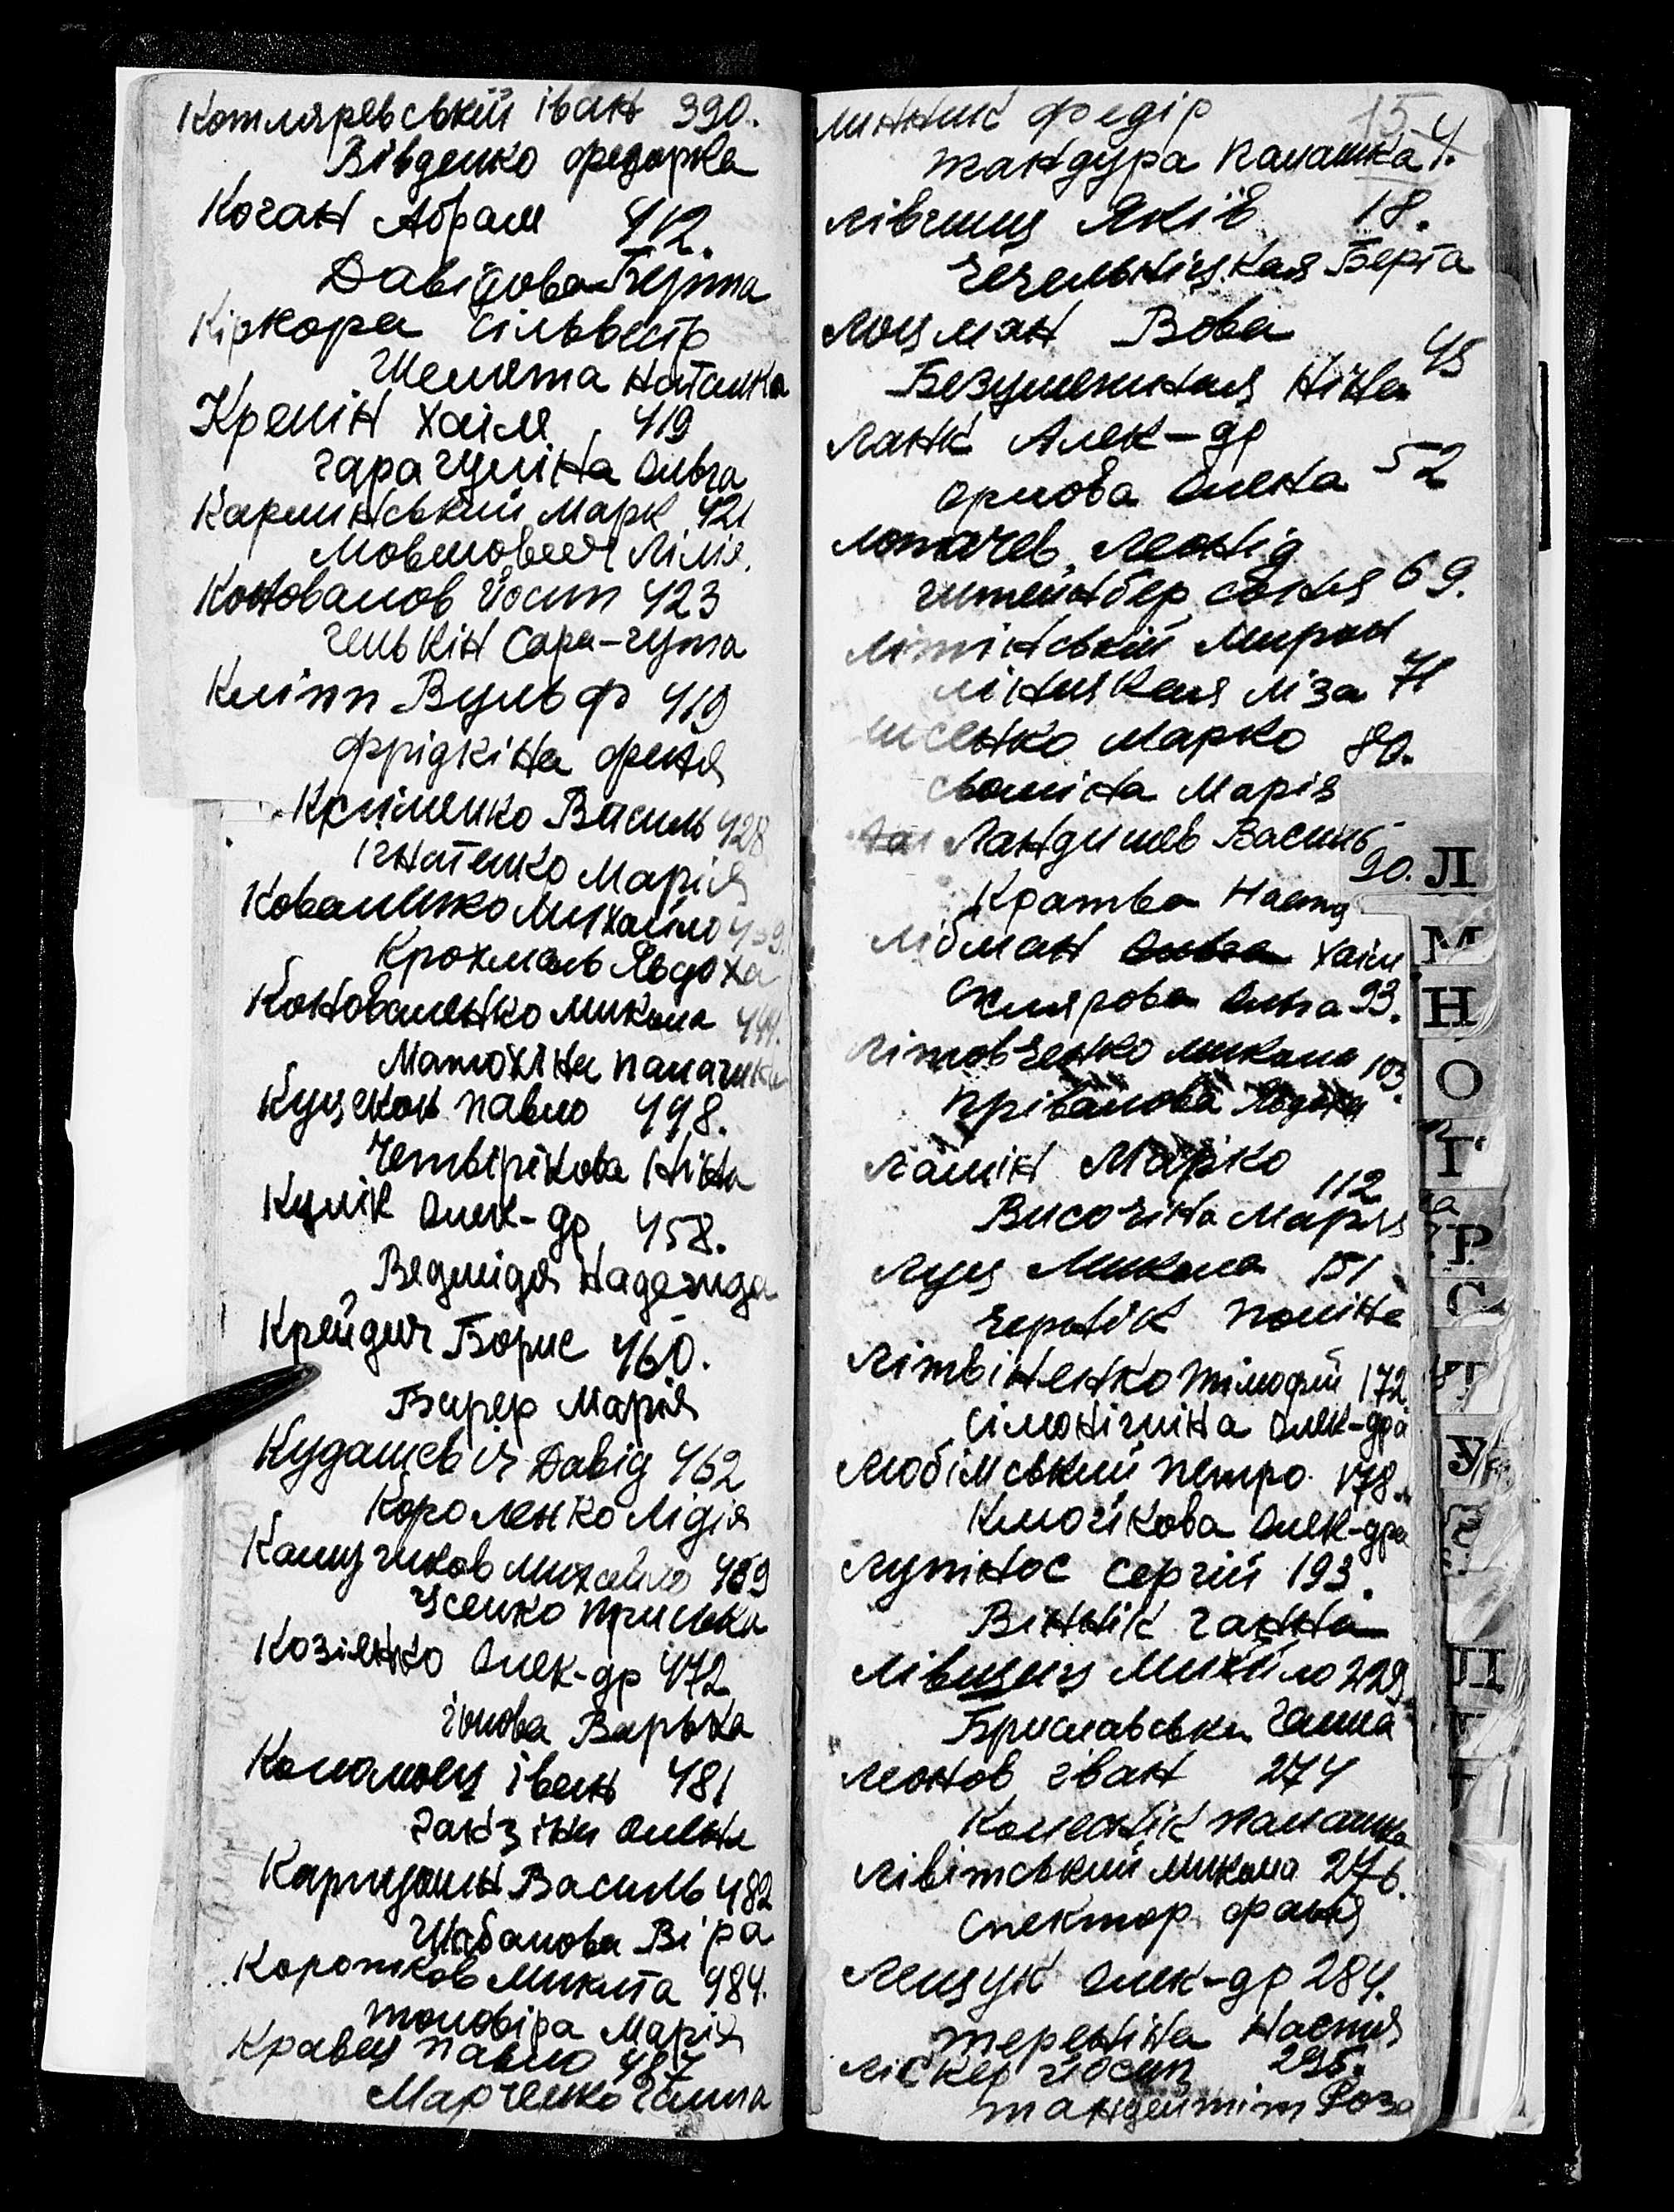 Котляревський Іван 390.
Вівденко Федорка
Коган Абрам 412.
Давідова Берта
Кіркора Сільвестр
Шелята Наталка
Кремін Хаім 419
Гарагуліна Ольга
Карлинський Марк 421
Мовшович Лілія.
Коновалов Йосип 423
Генькін Сара-Гута
Кліпп Вульф 419
Фрідкіна Феня
Кліменко Василь 428
Ігнатенко Марія
Коваленко Михайло
Крохмаль Явдоха
Коноваленко Микола 444.
Матохіна
Куцжон Павло 448.
Четвірікова Ніна
Кулік Олек-др 458.
Ведмідя Надежда
Крейдич Борис 460.
Барер Марія
Кудашевіч Давід 462
Короленко Лідія
Михайло 469
Усенко Приська
Козіенко Олек-др 472
Варька
Іван 481
Олена
Василь 482
Шабанова Віра
Коротков Микита 484.
Толовіра Марія
Кравец Павло 487
Марченко Ганна
Линник Федір 15 4
Тандура Палашка 4.
Лівшиц Яків 18.
Чечельніцкая Берта
Лоцман Вова
Нина 45
Ланк Алек-др
Орлова Олена 52
Лотачев Леонід
Гітенбер Соня 69.
Літінський Мирон
Лінцкая Ліза 71
Лисенко Марко 80.
Сваміна Марія
Ландишев Василь
90.
Кратва Настя
Лібман Хаім
Склярова Ольга 93.
Літовченко Микола 103.
Прівалова Явдоха
Лашін Марко
112
Височіна Марія
Луц Микола 151
Чернік Поліна
Літвіненко Тімофій 172
Сімонігіна Олек-дра
Любімський Петро 178.
Клюйкова Олек-дра
Лупінос Сергій 193.
Віннік Ганна
Лівшиц Михайло 229.
Бриславська Ганна
Леонов Іван 274
Коленік Палашка
Лівітський Микола 276.
Спектор Фаня
Лещук Олек-др 284.
Тереніна Настя
Ліскер Йосип 295.
Роза
Л
М
Н
О
П
Р
С
Т
У